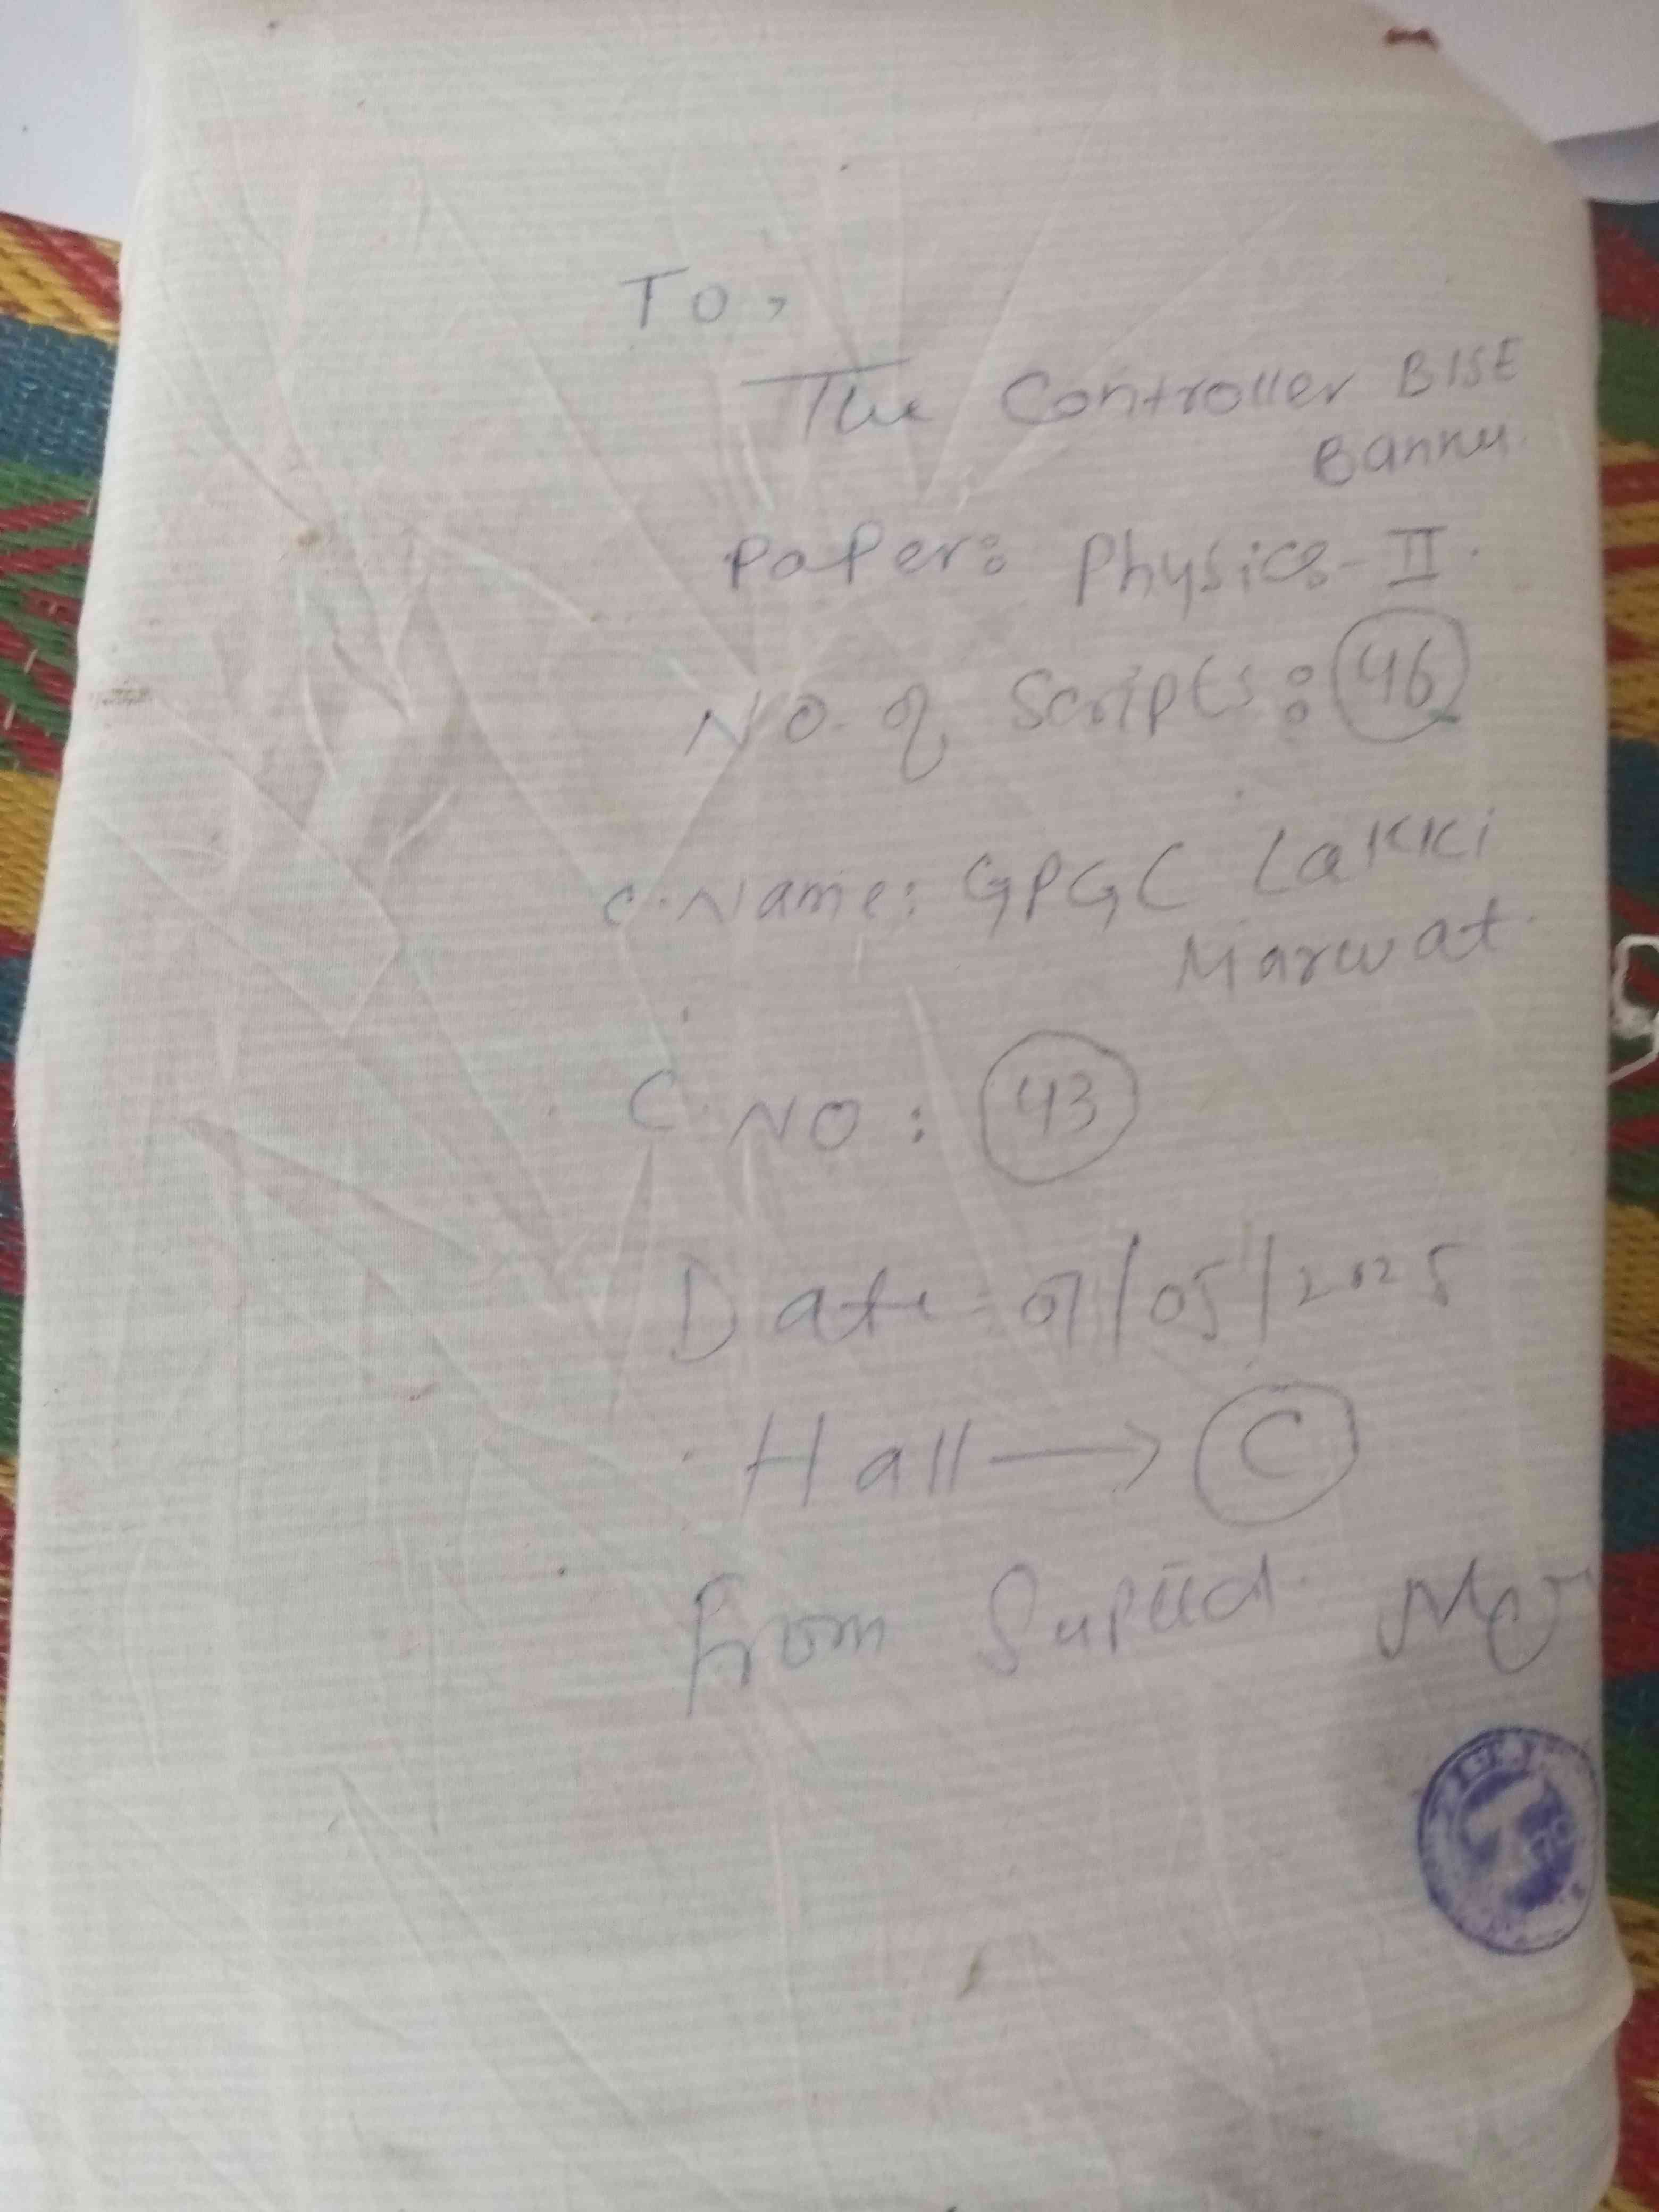 To,
The Controller BISE
Bannu.
Paper: Physics-II.
No. of Scripts: 46
C. Name: GPGC Lakki
Marwat.
C. NO: 43
Date: 07/05/2025
Hall → C
From Suptd.